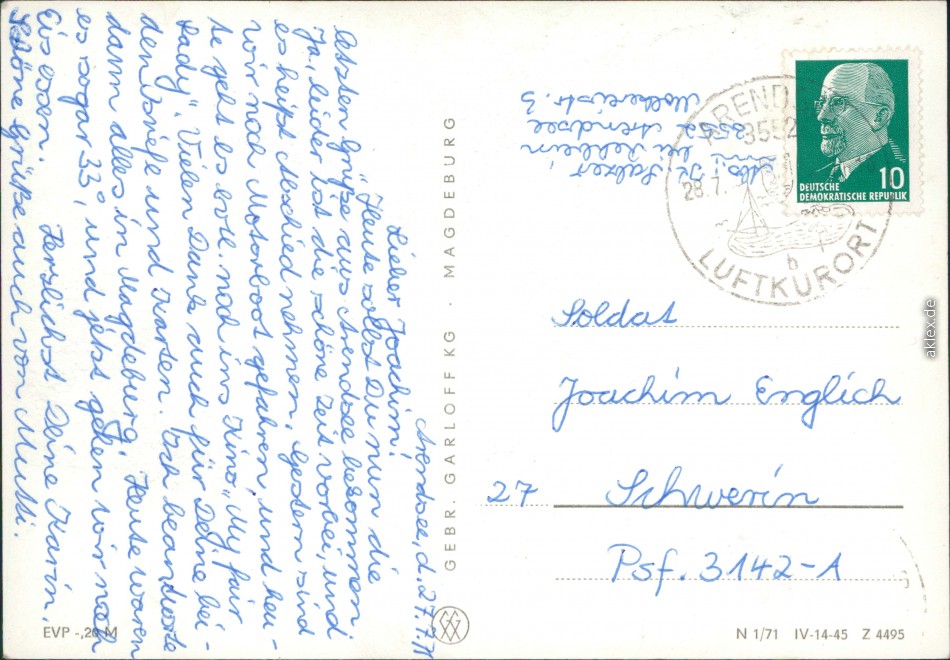 Arendsee, d. 27.7.71
Lieber Joachim!
Heute sollst Du nun die
letzten Grüße aus Arendsee bekommen.
Ja, leider ist die schöne Zeit vorbei, und
es heißt Abschied nehmen. Gestern sind
wir nach Motorboot gefahren, und heu-
te geht es evtl. noch ins Kino „My fair
Lady". Vielen Dank auch für Deine bei-
den Briefe und Karten. Ich beantworte
dann alles in Magdeburg. Heute waren
es sogar 33°, und jetzt gehen wir noch
Eis essen. Herzlichst Deine Karin.
Schöne Grüße auch von Mutti.
EVP -,20 M
GEBR. GARLOFF KG · MAGDEBURG
Salzer
bei
3552 Arendsee
Molkereistr. 3
ARENDSEE
3552
28.7.
b
LUFTKURORT
DEUTSCHE
DEMOKRATISCHE REPUBLIK
10
Soldat
Joachim Englich
27 Schwerin
Psf. 3142-1
N 1/71 IV-14-45 Z 4495
aklex.de